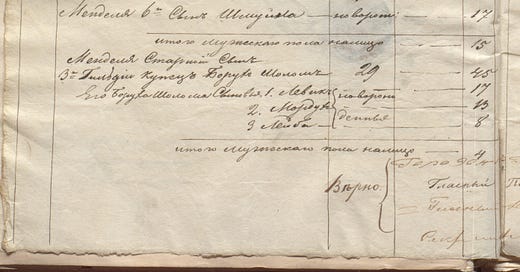 Менделя 6й Сынъ Шмуйла — новорож: — 17
итого мужескаго пола налицо — 15
Менделя Старшій Сынъ
3й Гильдіи купецъ Борухъ Шоломъ 29 — 45
Его Боруха Шолома Сыновья 1. Левикъ новорож — 17
2. Мордух денные — 13
3 Лейба — 8
итого Мужескаго пола налицо — 4
Вѣрно
Гласный